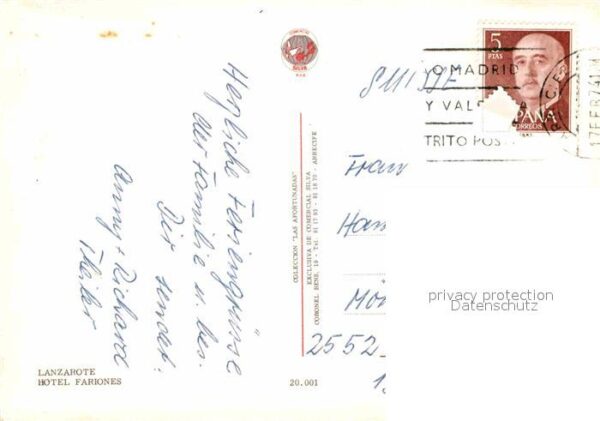 Herzliche Feriengrüsse
der Familie u. bes.
Dir sendet:
Anny + Richard
Theiler
LANZAROTE
HOTEL FARIONES
20.001
COLECCION "LAS AFORTUNADAS"
EXCLUSIVA DE COMERCIAL SILVA
CORONEL BENS, 10 - Tel. ARRECIFE
SILVA
5
PTAS
ESPAÑA
CORREOS
MADRID
Y VAL
TRITO POST
17 FEB 74
SUISSE
Frau
Han
Mö
2552
privacy protection
Datenschutz